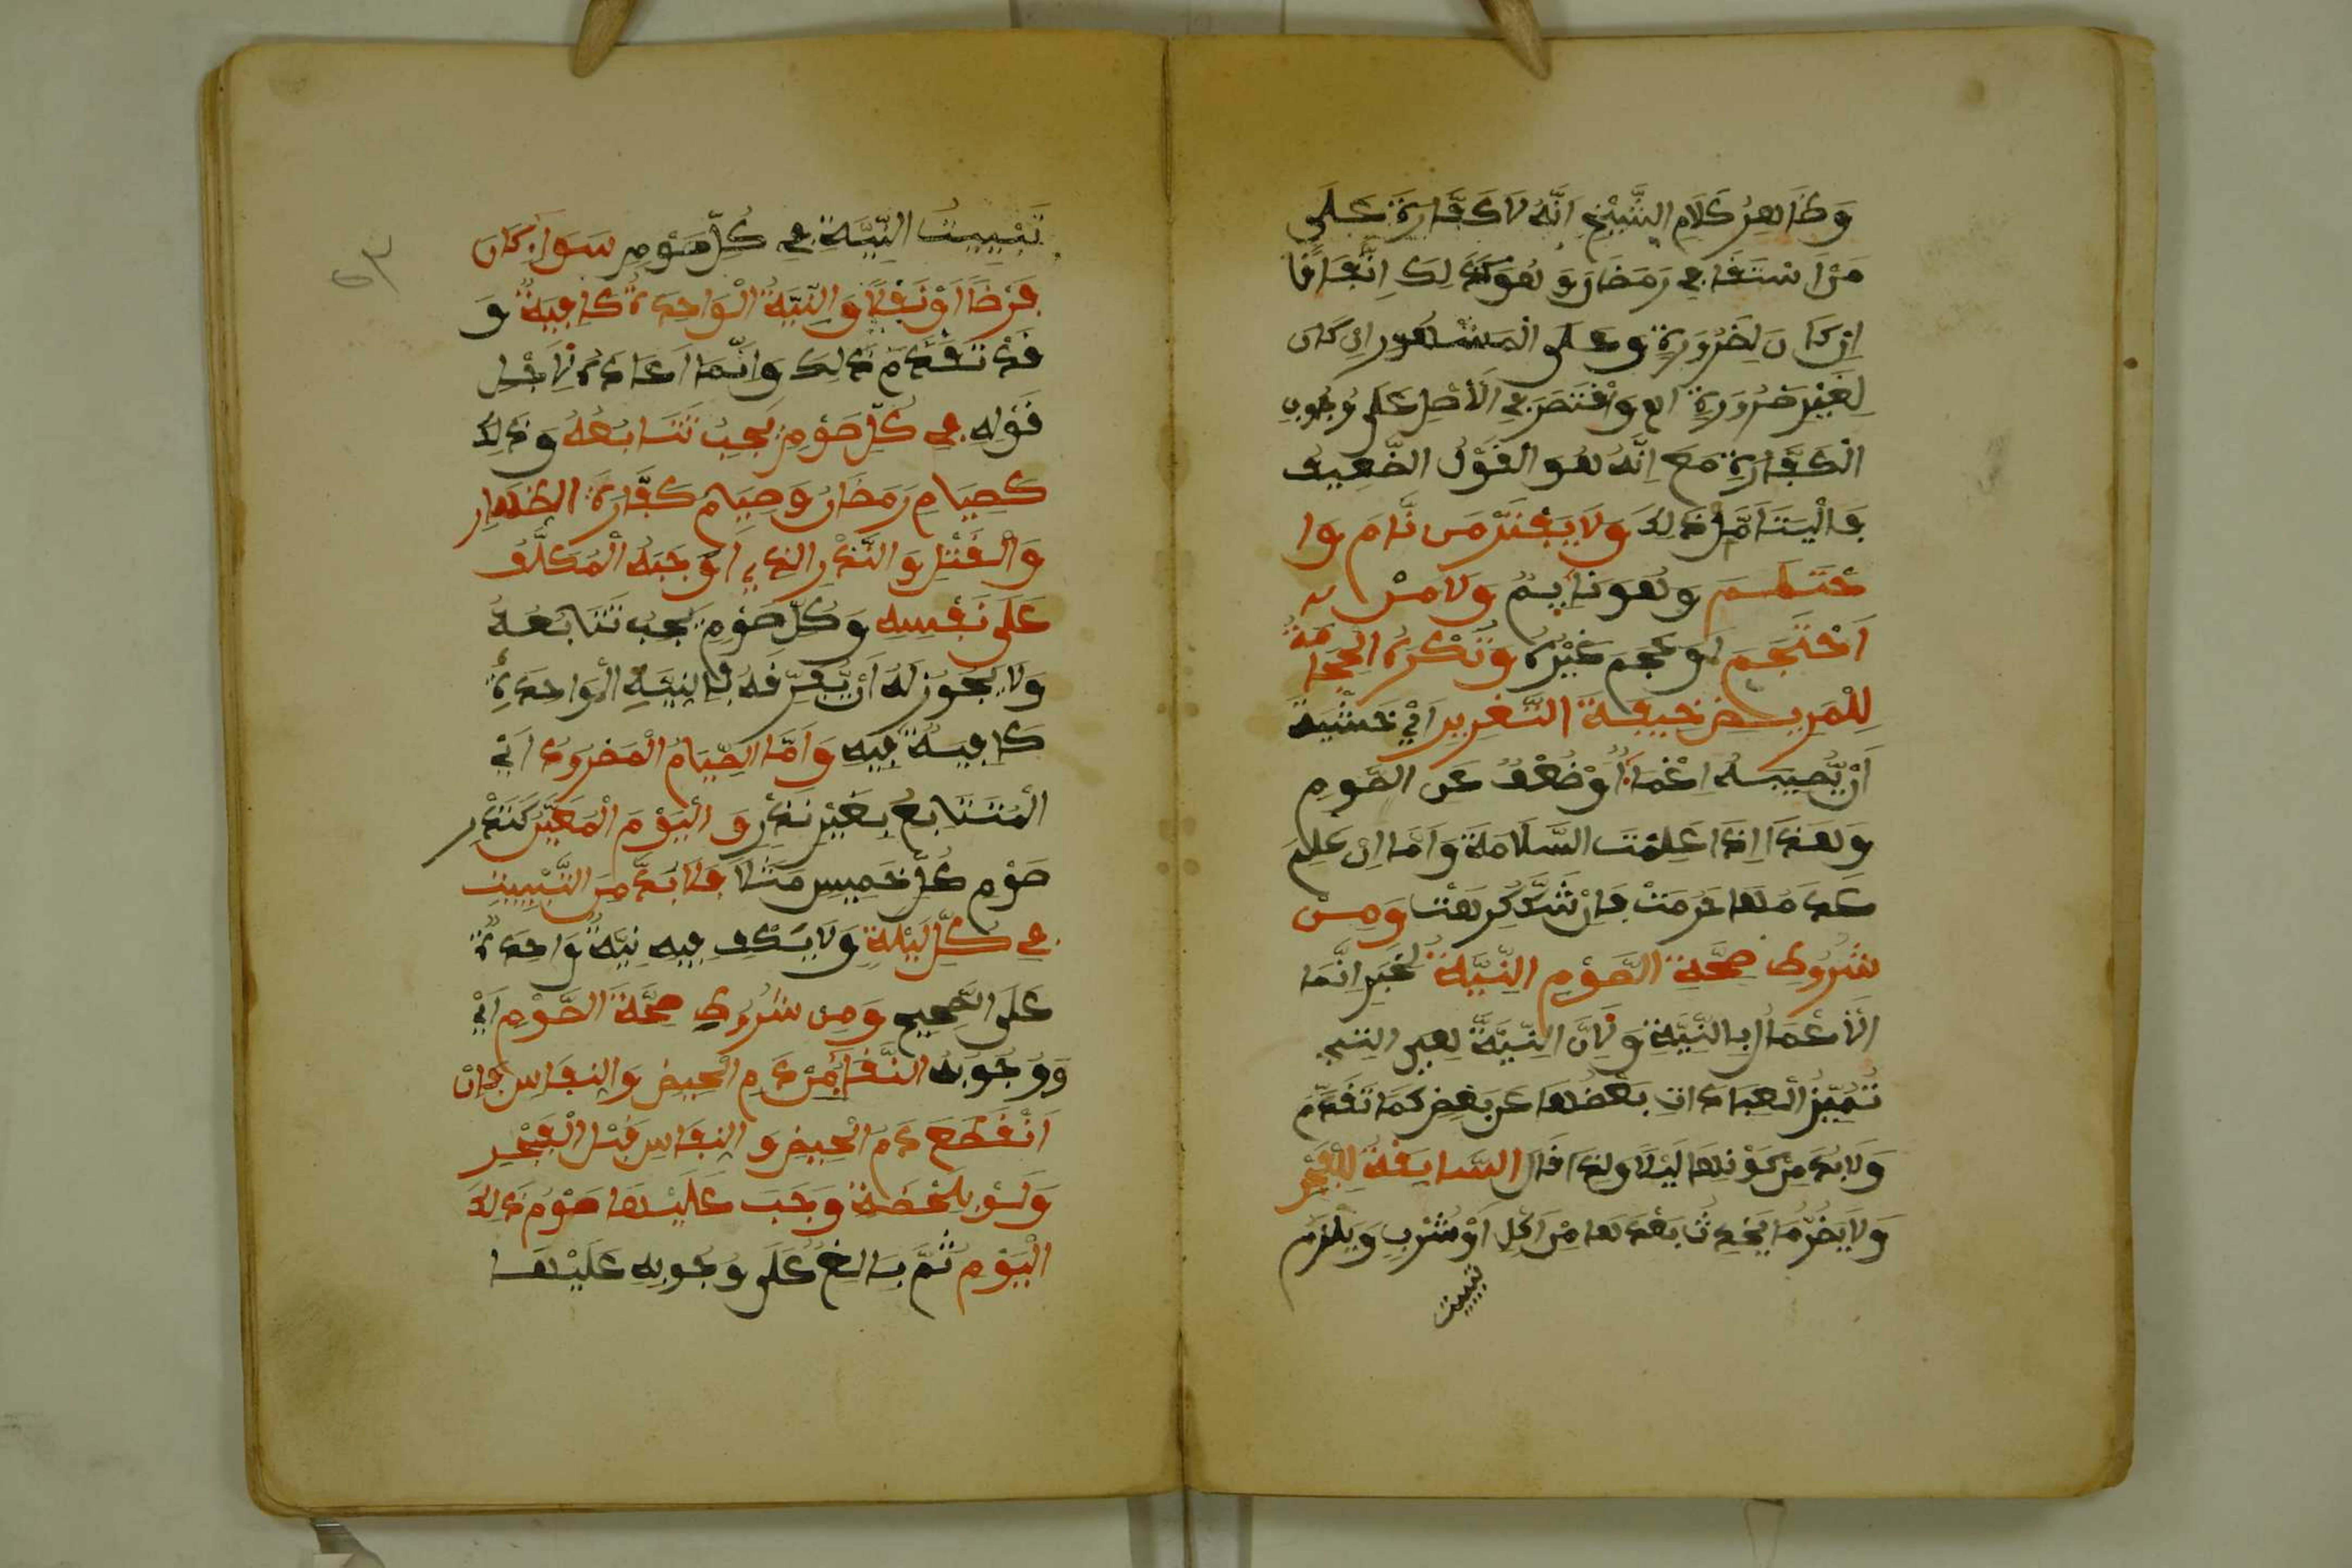 وَظَاهِرُ كَلَامِ الشَّيْخِ اَنَّهُ لَا كَفَّارَةَ عَلَى
مَنِ اسْتَقَا فِي رَمَضَانَ وَهُوَ كَذَلِكَ اِتِّفَاقًا
اِنْ كَانَ لِضَرُورَةٍ وَعَلَى الْمَشْهُورِ اِنْ كَانَ
لِغَيْرِ ضَرُورَةٍ اهـ وَاقْتَصَرَ فِي الْأَصْلِ عَلَى وُجُوبِ
الْكَفَّارَةِ مَعَ اَنَّهُ هُوَ الْقَوْلُ الضَّعِيفُ
فَالْيَتَأَمَّلْ ذَلِكَ وَلَا يُفْطِرُ مَنْ نَّامَ وَا
حْتَلَمَ وَهُوَ نَايِمٌ وَلَا مَنْ
اَحْتَجَمَ اَوْ حَجَمَ غَيْرَهُ وَتُكْرَهُ الْحِجَامَةُ
لِلْمَرِيضِ خِيفَةَ التَّغْرِيرِ اَيْ خَشْيَةَ
اَنْ يُّصِيبَهُ اِغْمَاءٌ اَوْ ضُعْفٌ عَنِ الصَّوْمِ
وَهَذَا اِذَا عُلِمَتِ السَّلَامَةُ وَاَمَّا اِنْ عُلِمَ
عَدَمُهَا حَرُمَتْ فَاِنْ شَكَّ كُرِهَتْ وَمِنْ
شُرُوطِ صِحَّةِ الصَّوْمِ النِّيَّةُ لِخَبَرِ اِنَّمَا
الْأَعْمَالُ بِالنِّيَّةِ وَلِأَنَّ النِّيَّةَ هِيَ الَّتِي
تُمَيِّزُ الْعِبَادَاتِ بَعْضُهَا عَنْ بَعْضٍ كَمَا تَقَدَّمَ
وَلَا بُدَّ مِنْ كَوْنِهَا لَيْلًا وَلِذَا قَالَ السَّابِقَةُ لِلْفَجْرِ
وَلَا يَضُرُّ مَا يَحْدُثُ بَعْدَهَا مِنْ اَكْلٍ اَوْ شُرْبٍ وَيَلْزَمُ
تبييت
تَبْيِيتُ النِّيَّةِ فِي كُلِّ صَوْمٍ سَوَاءٌ كَانَ
فَرْضًا اَوْ نَفْلًا وَالنِّيَّةُ الْوَاحِدَةُ كَافِيَةٌ وَ
قَدْ تَقَدَّمَ ذَلِكَ وَاِنَّمَا اَعَادَهُ لِاَجْلِ
قَوْلِهِ فِي كُلِّ صَوْمٍ يَجِبُ تَتَابُعُهُ وَذَلِكَ
كَصِيَامِ رَمَضَانَ وَصِيَامِ كَفَّارَةِ الظِّهَارِ
وَالْقَتْلِ وَالنَّذْرِ الَّذِي اَوْجَبَهُ الْمُكَلَّفُ
عَلَى نَفْسِهِ وَكُلِّ صَوْمٍ يَجِبُ تَتَابُعُهُ
وَلَا يَجُوزُ لَهُ اَنْ يُّفَرِّقَهُ فَالنِّيَّةُ الْوَاحِدَةُ
كَافِيَةٌ فِيهِ وَاَمَّا الصِّيَامُ الْمَسْرُودُ اَيْ
الْمُتَتَابِعُ بِغَيْرِ نَذْرٍ وَالْيَوْمُ الْمُعَيَّنُ كَنَذْرِ
صَوْمِ كُلِّ خَمِيسٍ مَثَلًا فَلَا بُدَّ مِنَ التَّبْيِيتِ
فِي كُلِّ لَيْلَةٍ وَلَا يَكْفِ فِيهِ نِيَّةٌ وَاحِدَةٌ
عَلَى الصَّحِيحِ وَمِنْ شُرُوطِ صِحَّةِ الصَّوْمِ اَيْ
وَوُجُوبِهِ النَّقَا مِنْ دَمِ الْحَيْضِ وَالنِّفَاسِ فَاِنِ
اَنْقَطَعَ دَمُ الْحَيْضِ وَالنِّفَاسِ قَبْلَ الْفَجْرِ
وَلَوْ بِلَحْظَةٍ وَجَبَ عَلَيْهَا صَوْمُ ذَلِكَ
الْيَوْمِ ثُمَّ بَالَغَ عَلَى وُجُوبِهِ عَلَيْهَا